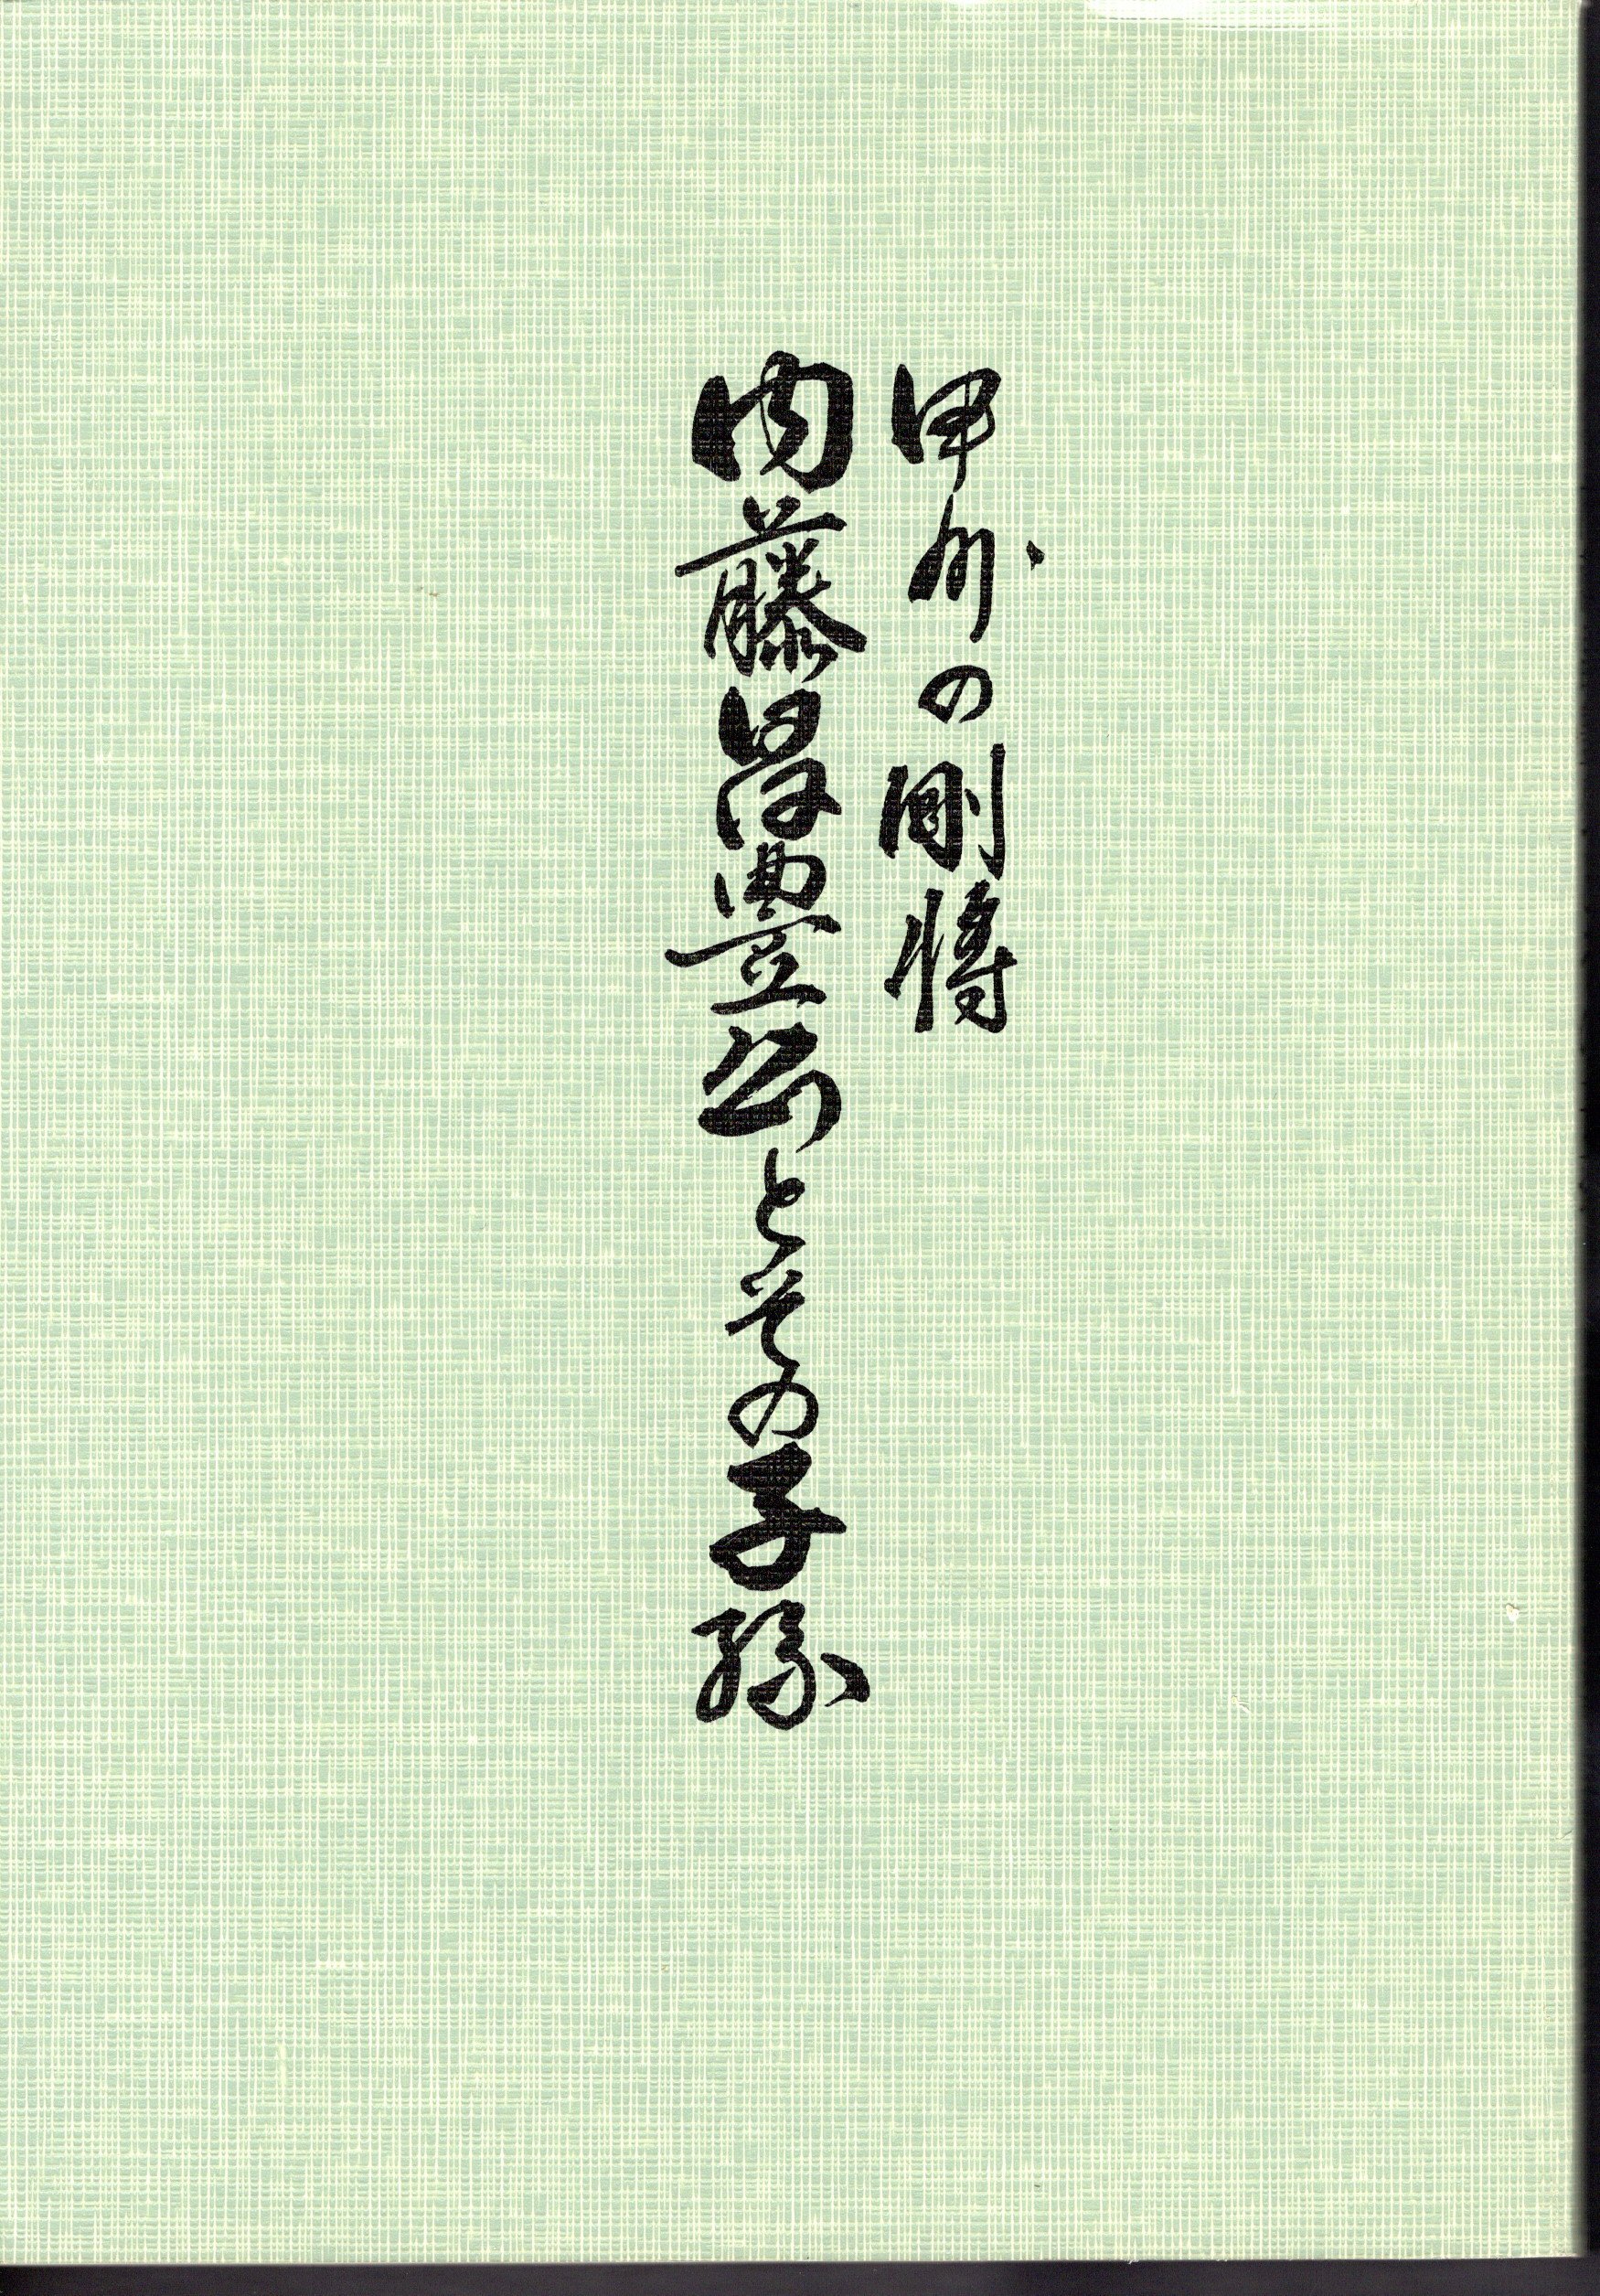 甲州の剛将
内藤昌豊公とその子孫